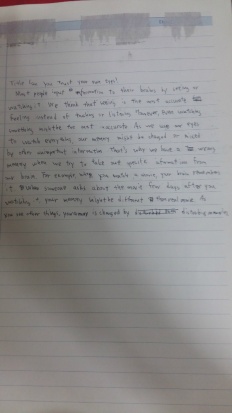 Title: Can you trust your own eyes?
Most people input information to their brains by seeing or
watching. We think that seeing is the most accurate
feeling instead of reading or listening. However, even watching
something might be not accurate. As we use our eyes
to watch everything, our memory might be changed or mixed
by other unimportant information. That's why we have a wrong
memory when we try to take out specific information from
our brain. For example, when you watch a movie, your brain
it. When someone asks about the movie few days after you
watching it, your memory might be different than real movie. As
you see other things, your memory is changed by disturbing memories.